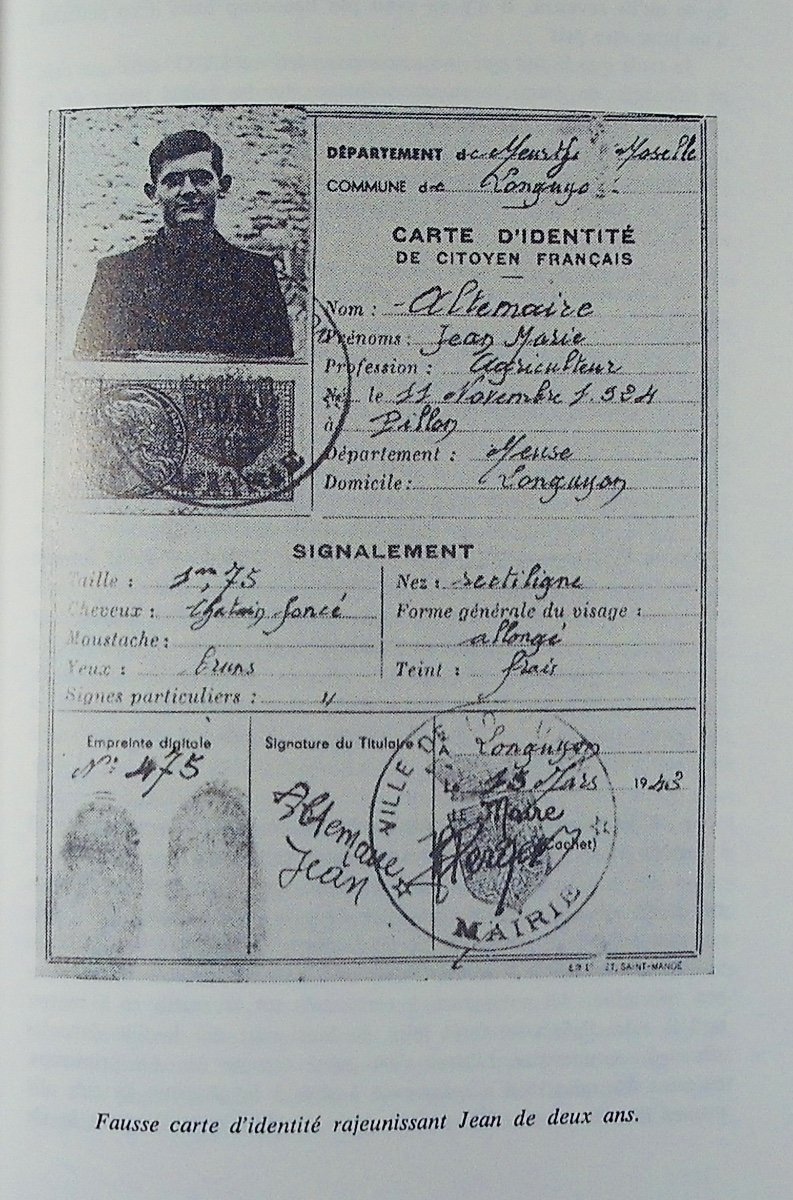 DÉPARTEMENT de Meurthe Moselle
COMMUNE de Longuyo
CARTE D'IDENTITÉ
DE CITOYEN FRANÇAIS
Nom : Altemaire
Prénoms : Jean Marie
Profession : Agriculteur
Né le 11 Novembre 1.924
à Pillon
Département : Meuse
Domicile : Longuyon
SIGNALEMENT
Taille : 1m,75
Cheveux : Chatain foncé
Moustache :
Yeux : bruns
Signes particuliers : "
Nez : rectiligne
Forme générale du visage :
allongé
Teint : frais
Empreinte digitale
N° 475
Signature du Titulaire
Altemaire
Jean
A Longuyon
Le 15 Mars 1943
Le Maire
(Cachet)
VILLE DE
MAIRIE
SAINT-MANDÉ
Fausse carte d'identité rajeunissant Jean de deux ans.